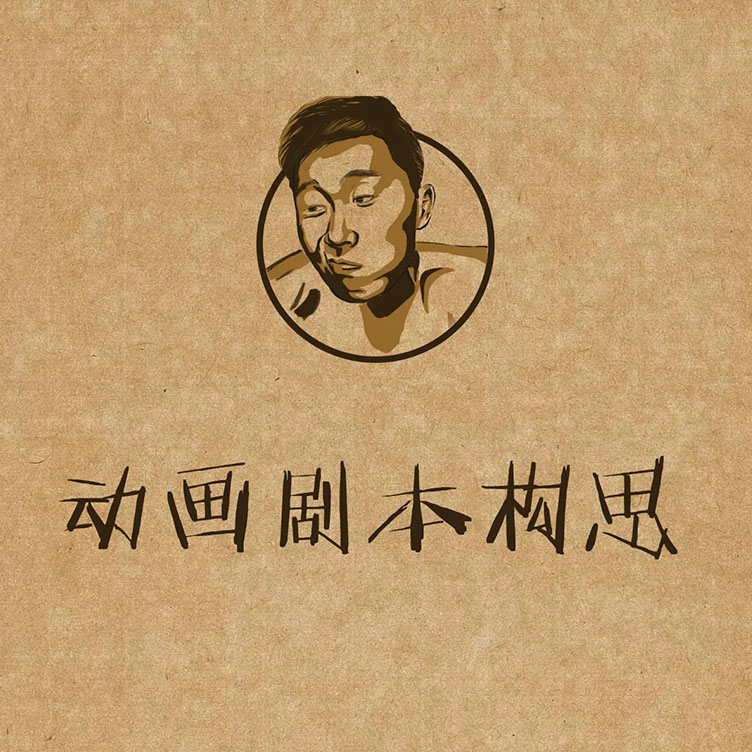 动画剧本构思